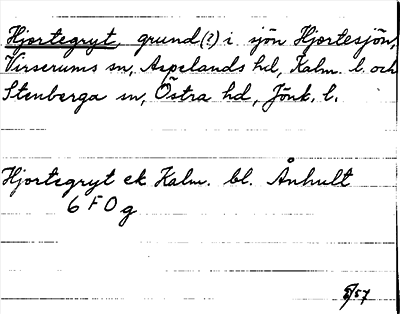 Hjortegryt, grund(?) i sjön Hjortesjön,
Virserums sn, Aspelands hd, Kalm. l. och
Stenberga sn, Östra hd, Jönk. l.
Hjortegryt ek Kalm. bl. Ånhult
6 F 0 g
5/57